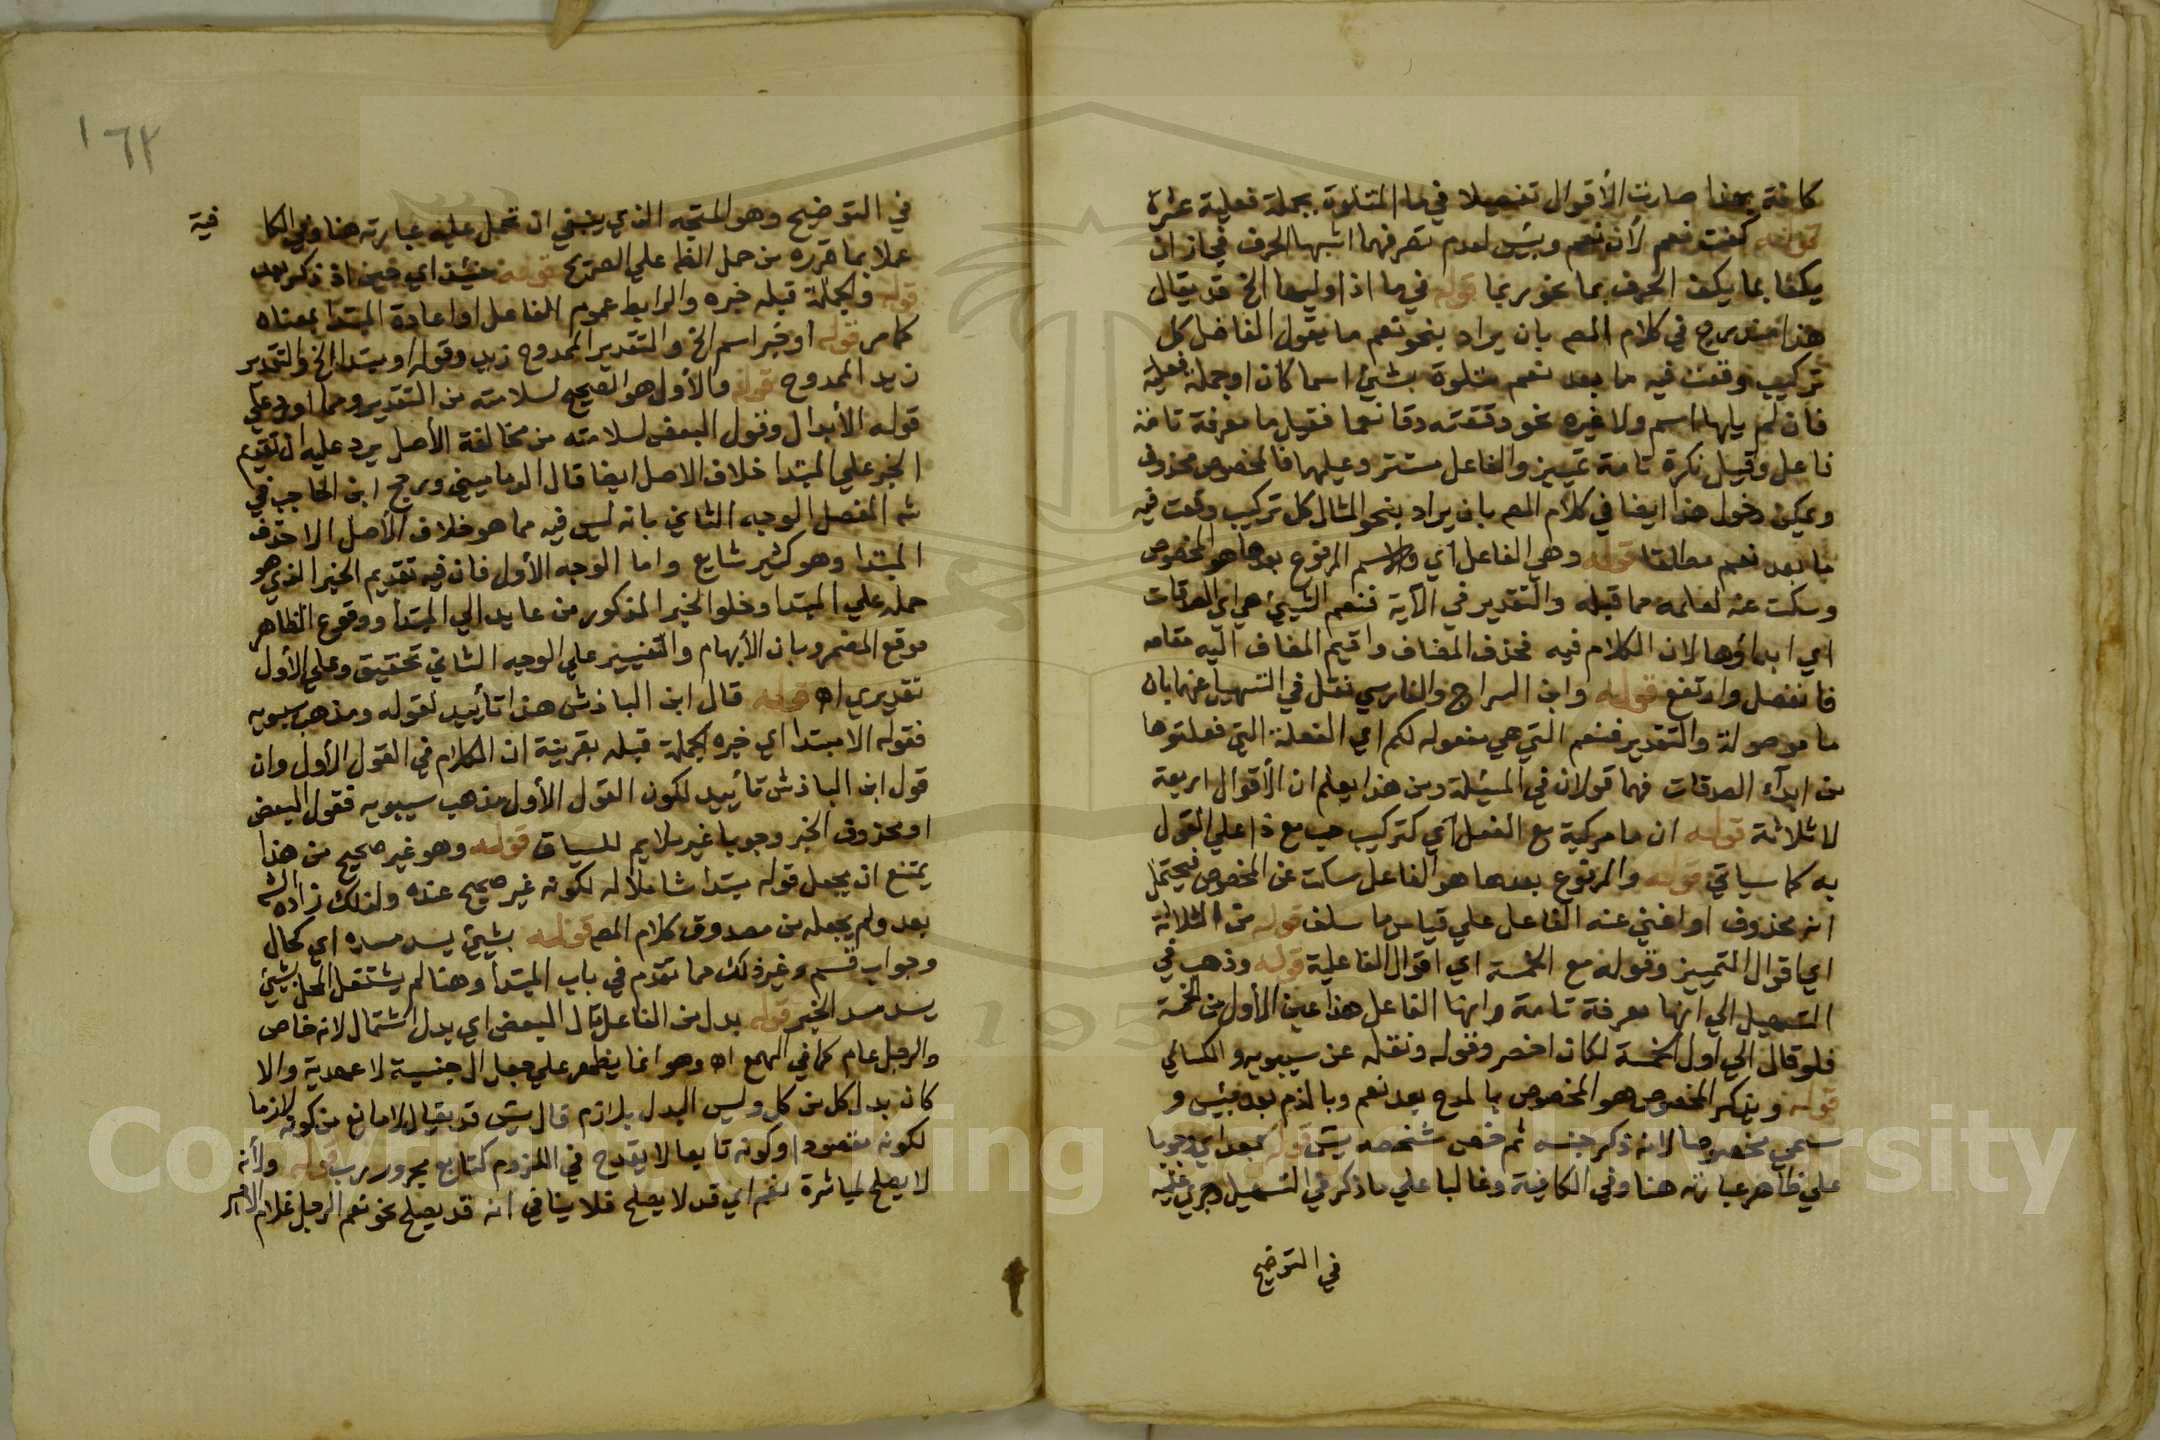 كافة بهذا صارت الأقوال تفصيلا في ما المتلوة بجملة فعلية عشرة
قوله كفت نعم لأن نعم وبئس لعدم تصرفهما اشبها الحرف فجاز ان
يكفا بما يكف الحرف بما نحو ربما قوله في ما اذا وليها الخ قد يقال
هذا مندرج في كلام المص بان يراد بنحو نعم ما يقول الفاضل كل
تركيب وقعت فيه ما بعد نعم متلوة بشئ اسما كان او جملة فعلية
فان لم يلها اسم ولا غيره نحو دققته دقا نعما فقيل ما معرفة تامة
فاعل وقيل نكرة تامة تمييز والفاعل مستتر وعليهما فالمخصوص محذوف
ويمكن دخول هذا ايضا في كلام المص بان يراد بنحو المثال كل تركيب وقعت فيه
ما بعد نعم مطلقا قوله وهي الفاعل اي والاسم المرفوع بعدها هو المخصوص
وسكت عنه لعلمه مما قبله والتقدير في الآية فنعم الشيئ هي اي الصدقات
اي ابداؤها لان الكلام فيه فحذف المضاف واقيم المضاف اليه مقامه
فانفصل وارتفع قوله وابن السراج والفارسي نقل في التسهيل عنهما بان
ما موصولة والتقدير فنعم التي هي مفعوله لكم اي الفعلة التي فعلتوها
من ابداء الصدقات فهما قولان في المسئلة ومن هذا يعلم ان الأقوال اربعة
لا ثلاثة قوله ان ما مركبة مع الفعل اي كتركيب حب مع ذا علي القول
به كما سياتي قوله والمرفوع بعدها هو الفاعل سكت عن المخصوص فيحتمل
انه محذوف او اغني عنه الفاعل علي قياس ما سلف قوله من الثلاثة
اي اقوال التمييز وقوله مع الخمسة اي اقوال الفاعلية قوله وذهب في
التسهيل الي انها معرفة تامة وانها الفاعل هذا عين الأول من الخمسة
فلو قال الي اول الخمسة لكان اخصر وقوله ونقله عن سيبويه والكسائي
قوله ويذكر المخصوص هو المخصوص بالمدح بعد نعم وبالذم بعد بئيس و
سمي مخصوصا لانه ذكر جنسه ثم خص شخصه يس قوله بعد اي وجوبا
علي ظاهر عبارته هنا وفي الكافية وغالبا علي ما ذكر في التسهيل وجري عليه
في التوضيح
١٦٢
في التوضيح وهو المتجه الذي ينبغي ان تحمل عليه عبارته هنا وفي الكافية
عملا بما قرره من حمل الظ علي الصريح قوله حينئذ اي حين اذ ذكر بعد
قوله والجملة قبله خبره والرابط عموم الفاعل او اعادة المبتدا بمعناه
كما مر قوله او خبر اسم الخ والتقدير الممدوح زيد وقوله او مبتدا الخ والتقدير
زيد الممدوح قوله والأول هو الصحيح لسلامته من التقدير ومما اورد علي
قوله الأبدال وقول البعض لسلامته من مخالفة الأصل يرد عليه ان تقديم
الخبر علي المبتدا خلاف الاصل ايضا قال الدماميني ورجح ابن الحاجب في
شه المفصل الوجه الثاني بانه ليس فيه مما هو خلاف الأصل الا حذف
المبتدا وهو كثير شايع واما الوجه الأول فان فيه تقديم الخبر الذي هو
جملة علي المبتدا وخلو الخبر المذكور من عايد الي المبتدا ووقوع الظاهر
موقع المضمر وبان الأبهام والتفسير علي الوجه الثاني تحقيق وعلي الأول
تقديري اه قوله قال ابن الباذش هذا تأييد لقوله ومذهب سيبويه
فقوله الا مبتدا اي خبره الجملة قبله بقرينة ان الكلام في القول الأول وان
قول ابن الباذش تأييد لكون القول الأول مذهب سيبويه فقول البعض
او محذوف الخبر وجوبا غير ملايم للسياق قوله وهو غير صحيح من هذا
يمتنع ان يجعل قوله مبتدا شاملا له لكونه غير صحيح عنده ولذلك زاده الشه
بعد ولم يجعله من مصدوق كلام المص قوله بشيئ يسد مسده اي كحال
وجواب قسم وغير ذلك مما تقدم في باب المبتدأ وهنا لم يشتغل المحل بشيئ
يسد مسد الخبر قوله بدل من الفاعل قال البعض اي بدل اشتمال لانه خاص
والرجل عام كما في الهمع اه وهو انما يظهر علي جعل ال جنسية لا عهدية والا
كان بدل كل من كل وليس البدل بلازم قال يس قد يقال لا مانع من كونه لازما
لكونه مقصودا وكونه تابعا لا يقدح في اللزوم كتابع مجرور رب قوله ولأنه
لا يصلح لمباشرة نعم اي قد لا يصلح فلا ينافي انه قد يصلح نحو نعم الرجل غلام الأمير